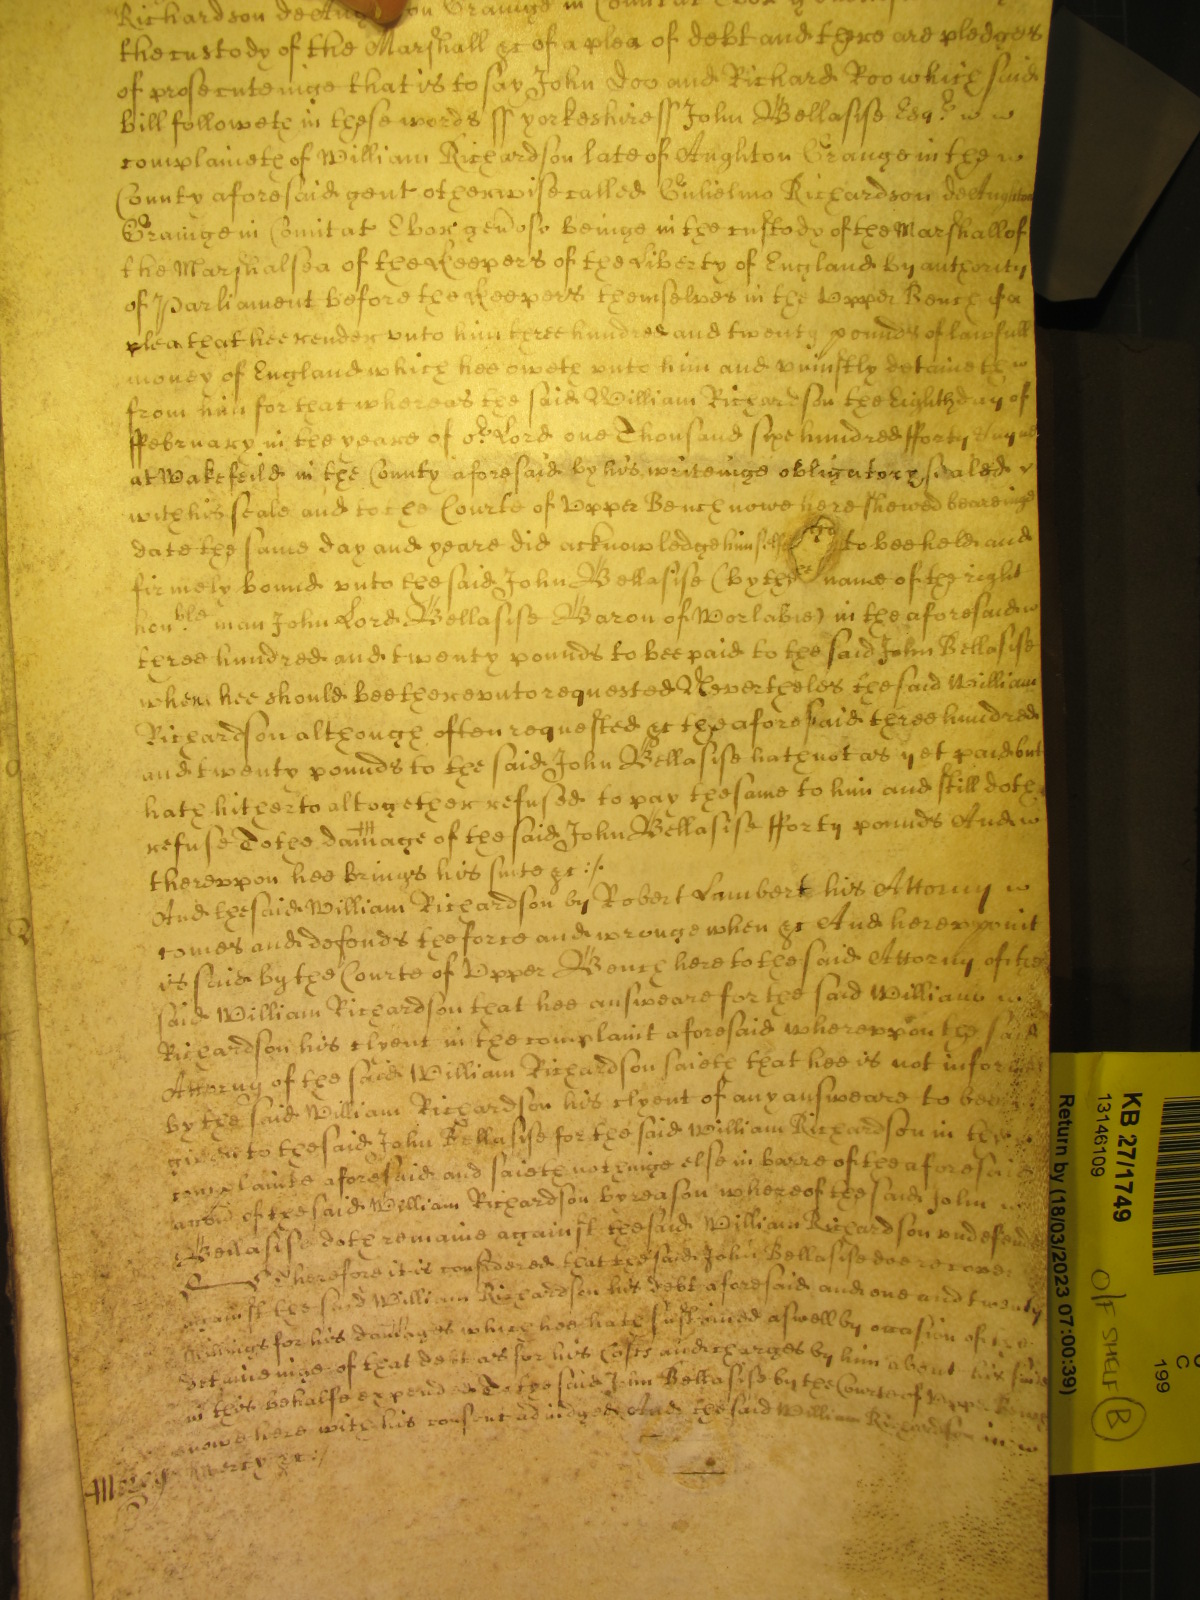 Richardson de Aughton Grainge in Comitat Ebor
the custody of the Marshall &c of a plea of debt and there are pledges
of prosecuteinge that is to say John Doo and Richard Roo which said
bill followeth in these words ss yorkeshire ss John Bellasise Esqr
complaineth of William Richardson late of Aughton Grange in the
County aforesaid gent otherwise called Gulielmo Richardson de Aughton
Grainge in Comitat Ebor genoso beinge in the custody of the Marshall of
the Marshalsea of the Keepers of the Liberty of England by authority
of Parliament before the Keepers themselves in the Upper Bench of a
plea that hee render unto him three hundred and twenty pounds of lawfull
money of England which hee oweth unto him and uniustly detaineth
from him for that whereas the said William Richardson the Eighth day of
ffebruary in the yeare of or Lord one Thousand sixe hundred fforty
at Wakefeild in the County aforesaid by his writeinge obligatory sealed
with his seale and to the Courte of Upper Bench nowe here shewed beareinge
date the same day and yeare did acknowledge himselfe to bee held and
firmely bound unto the said John Bellasise (by the name of the right
honble man John Lord Bellasise Baron of Worlabie) in the aforesaid
three hundred and twenty pounds to bee paid to the said John Bellasise
when hee should bee thereunto requested Neverthelesse the said William
Richardson although often requested &c the aforesaid three hundred
and twenty pounds to the said John Bellasise hath not as yet paid but
hath hitherto altogether refused to pay the same to him and still doth
refuse To the damage of the said John Bellasise fforty pounds And
thereuppon hee brings his suite &c :/.
And the said William Richardson by Robert Lambert his Attorny
comes and defends the force and wronge when &c And hereuppon it
is said by the Courte of Upper Bench here to the said Attorny of the
said William Richardson that hee answeare for the said William
Richardson his clyent in the complaint aforesaid whereuppon the said
Attorny of the said William Richardson saieth that hee is not informed
by the said William Richardson his clyent of any answeare to bee
given to the said John Bellasise for the said William Richardson in the
complainte aforesaid and saieth nothinge else in barre of the aforesaid
accon of the said William Richardson by reason whereof the said John
Bellasise doth remaine against the said William Richardson undefended
Therefore it is considered that the said John Bellasise doe recover
against the said William Richardson his debt aforesaid and one and twenty
shillings for his damages which hee hath sustained aswell by occasion of the
detaineinge of that debt as for his Costs and charges by him about his suite
in this behalfe expended To the said John Bellasise by the Courte of Upper Bench
nowe here with his consent adiudged And the said William Richardson in
mercy &c :/
KB 27/1749
13146109
Return by (18/03/2023 07:00:39)
O/F SHELF B
C
199